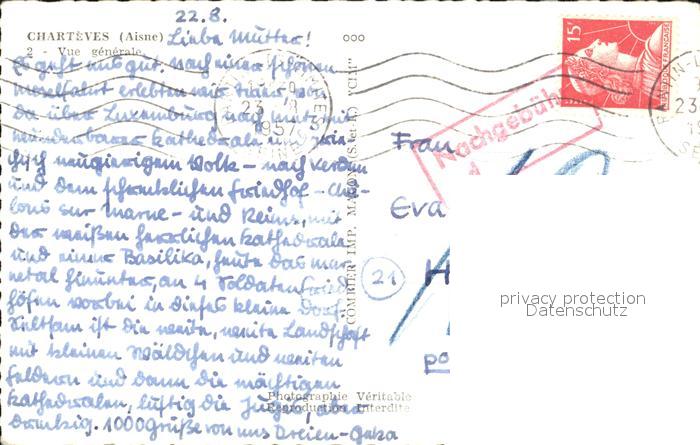 22.8.
CHARTÈVES (Aisne) Liebe Mutter!
2 - Vue générale
Es geht uns gut. Nach einer schönen
Moselfahrt erlebten wir Trier von
da über Luxemburg nach Metz mit
wunderbarer Kathedrale und
neugierigem Volk - nach Verdun
und dem schrecklichen Friedhof - Cha-
lons sur Marne - und Reims, mit
der weißen herrlichen Kathedrale
und einer Basilika, heute das Mar-
netal hinunter, an 4 Soldatenfried
höfen vorbei in dieses kleine Dorf.
Seltsam ist die weite, weite Landschaft
mit kleinen Wäldchen und weiten
Feldern und dann die mächtigen
Kathedralen, lustig die Jugend, aber
dreckig. 1000 Grüße von uns Dreien -
Photographie Véritable
Reproduction Interdite
COMBIER IMP. MACON (S.-et-L.) "CIM"
15F
23
1957
Nachgebühr
Frau
Eva
21
H
po
privacy protection
Datenschutz